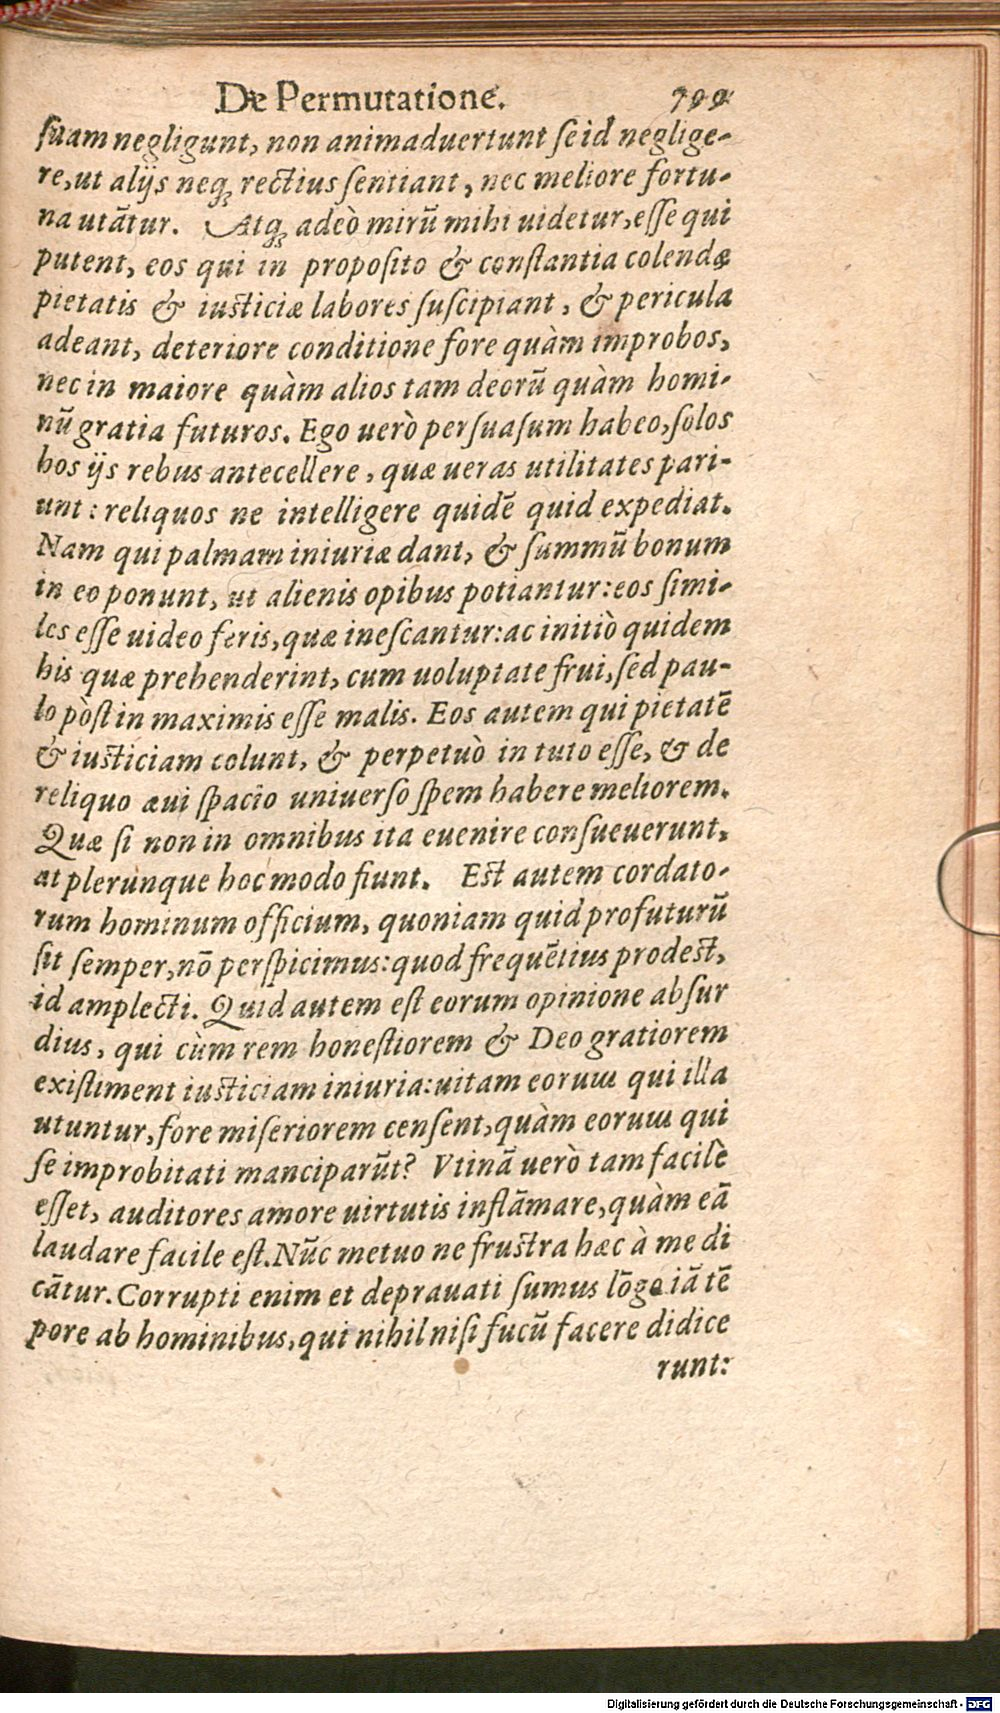 De Permutatione. 799
ſuam negligunt, non animaduertunt ſe id neglige-
re, ut alijs neq; rectius ſentiant, nec meliore fortu-
na utãtur. Atq; adeò mirũ mihi uidetur, eſſe qui
putent, eos qui in propoſito & conſtantia colendæ
pietatis & iuſticiæ labores ſuſcipiant, & pericula
adeant, deteriore conditione fore quàm improbos,
nec in maiore quàm alios tam deorũ quàm homi-
nũ gratia futuros. Ego uerò perſuaſum habeo, ſolos
hos ijs rebus antecellere, quæ ueras utilitates pari-
unt: reliquos ne intelligere quidẽ quid expediat.
Nam qui palmam iniuriæ dant, & ſummũ bonum
in eo ponunt, ut alienis opibus potiantur: eos ſimi-
les eſſe uideo feris, quæ ineſcantur: ac initiò quidem
his quæ prehenderint, cum uoluptate frui, ſed pau-
lo pòſt in maximis eſſe malis. Eos autem qui pietatẽ
& iuſticiam colunt, & perpetuò in tuto eſſe, & de
reliquo æui ſpacio uniuerſo ſpem habere meliorem.
Quæ ſi non in omnibus ita euenire conſueuerunt,
at plerunque hoc modo fiunt. Eſt autem cordato-
rum hominum officium, quoniam quid profuturũ
ſit ſemper, nõ perſpicimus: quod frequẽtius prodeſt,
id amplecti. Quid autem eſt eorum opinione abſur
dius, qui cùm rem honeſtiorem & Deo gratiorem
exiſtiment iuſticiam iniuria: uitam eorum qui illa
utuntur, fore miſeriorem cenſent, quàm eorum qui
ſe improbitati manciparũt? Vtinã uerò tam facilè
eſſet, auditores amore uirtutis inflãmare, quàm eã
laudare facile eſt. Nũc metuo ne fruſtra hæc à me di
cãtur. Corrupti enim et deprauati ſumus lõgo iã tẽ
pore ab hominibus, qui nihil niſi fucũ facere didice
runt:
Digitalisierung gefördert durch die Deutsche Forschungsgemeinschaft - DFG